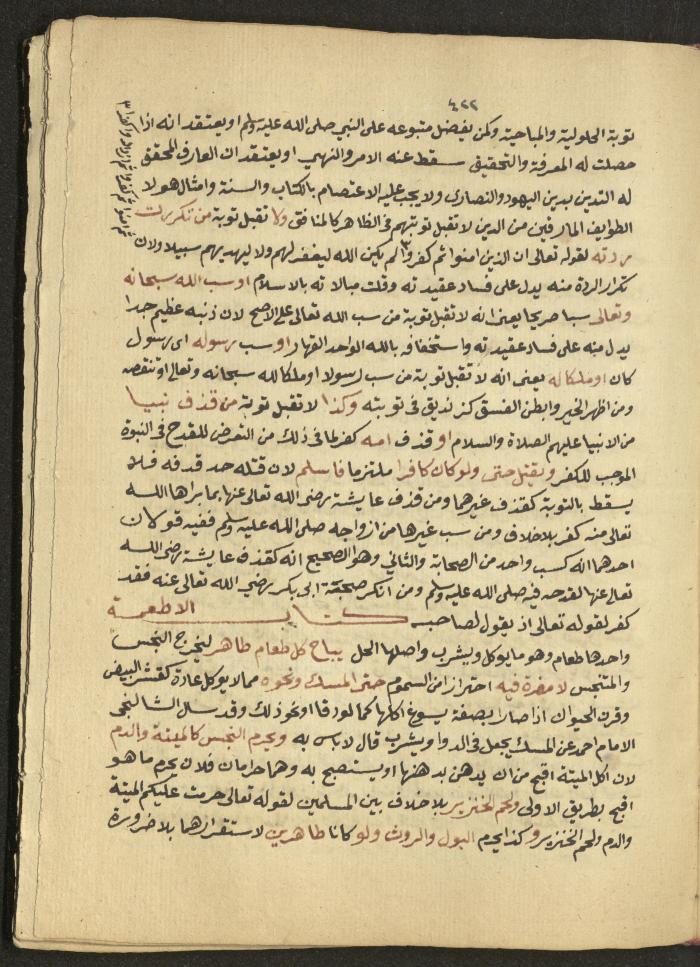 ٤٢٢
توبة الحلولية والمباحية وكمن يفضل متبوعه على النبي صلى الله عليه وسلم او يعتقد انه اذا
حصلت له المعرفة والتحقيق سقط عنه الامر والنهي او يعتقد ان العارف المحقق
له التدين بدين اليهود والنصارى ولا يجب عليه الاعتصام بالكتاب والسنة وامثال هولا
الطوايف المارقين من الدين لا تقبل توبتهم في الظاهر كالمنافق ولا تقبل توبة من تكررت
ردته لقوله تعالى ان الذين امنوا ثم كفروا ٣ لم يكن الله ليغفر لهم ولا ليهديهم سبيلا ولان
تكرار الردة منه يدل على فساد عقيدته وقلت مبالاته بالاسلام او سب الله سبحانه
وتعالى سبا صريحا يعنى انه لا تقبل توبة من سب الله تعالى على الاصح لان ذنبه عظيم جدا
يدل منه على فساد عقيدته واستخفافه بالله الواحد القهار او سب رسوله اى رسول
كان او ملكا له يعنى انه لا تقبل توبة من سب رسولا او ملكا لله سبحانه وتعالى او تنقصه
ومن اظهر الخير وابطن الفسق كزنديق في توبته وكذا لا تقبل توبة من قذف نبيا
من الانبيا عليهم الصلاة والسلام او قذف امه كفر لما في ذلك من التعرض للقدح في النبوة
الموجب للكفر ويقتل حتى ولو كان كافرا ملتزما فاسلم لان قتله حد قذفه فلا
يسقط بالتوبة كقذف غيرهما ومن قذف عايشة رضى الله تعالى عنها بما براها الله
تعالى منه كفر بلا خلاف ومن سب غيرها من ازواجه صلى الله عليه وسلم ففيه قولان
احدهما انه كسب واحد من الصحابة والثاني وهو الصحيح انه كقذف عايشة رضى الله
تعالى عنها لقدحه فيه صلى الله عليه وسلم ومن انكر صحبة ابى بكر رضي الله تعالى عنه فقد
كفر لقوله تعالى اذ يقول لصاحبه كتاب الاطعمة
واحدها طعام وهو ما يوكل ويشرب واصلها الحل يباح كل طعام طاهر ليخرج النجس
والمتنجس لا مضرة فيه احترازا من السموم حتى المسك ونحوه مما لا يوكل عادة كقشر البيض
وقرن الحيوان اذا صارا بصفة يسوغ اكلها كما لو دقا او نحو ذلك وقد سال الشالنجى
الامام احمد عن المسك يجعل في الدوا ويشرب قال لا باس به ويحرم النجس كالميتة والدم
لان اكل الميتة اقبح من ان يدهن بدهنها او يستصبح به وهما حرامان فلان يحرم ما هو
اقبح بطريق الاولى ولحم الخنزير بلا خلاف بين المسلمين لقوله تعالى حرمت عليكم الميتة
والدم ولحم الخنزير وكذا يحرم البول والروث ولو كانا طاهرين لاستقذارهما بلا ضرورة